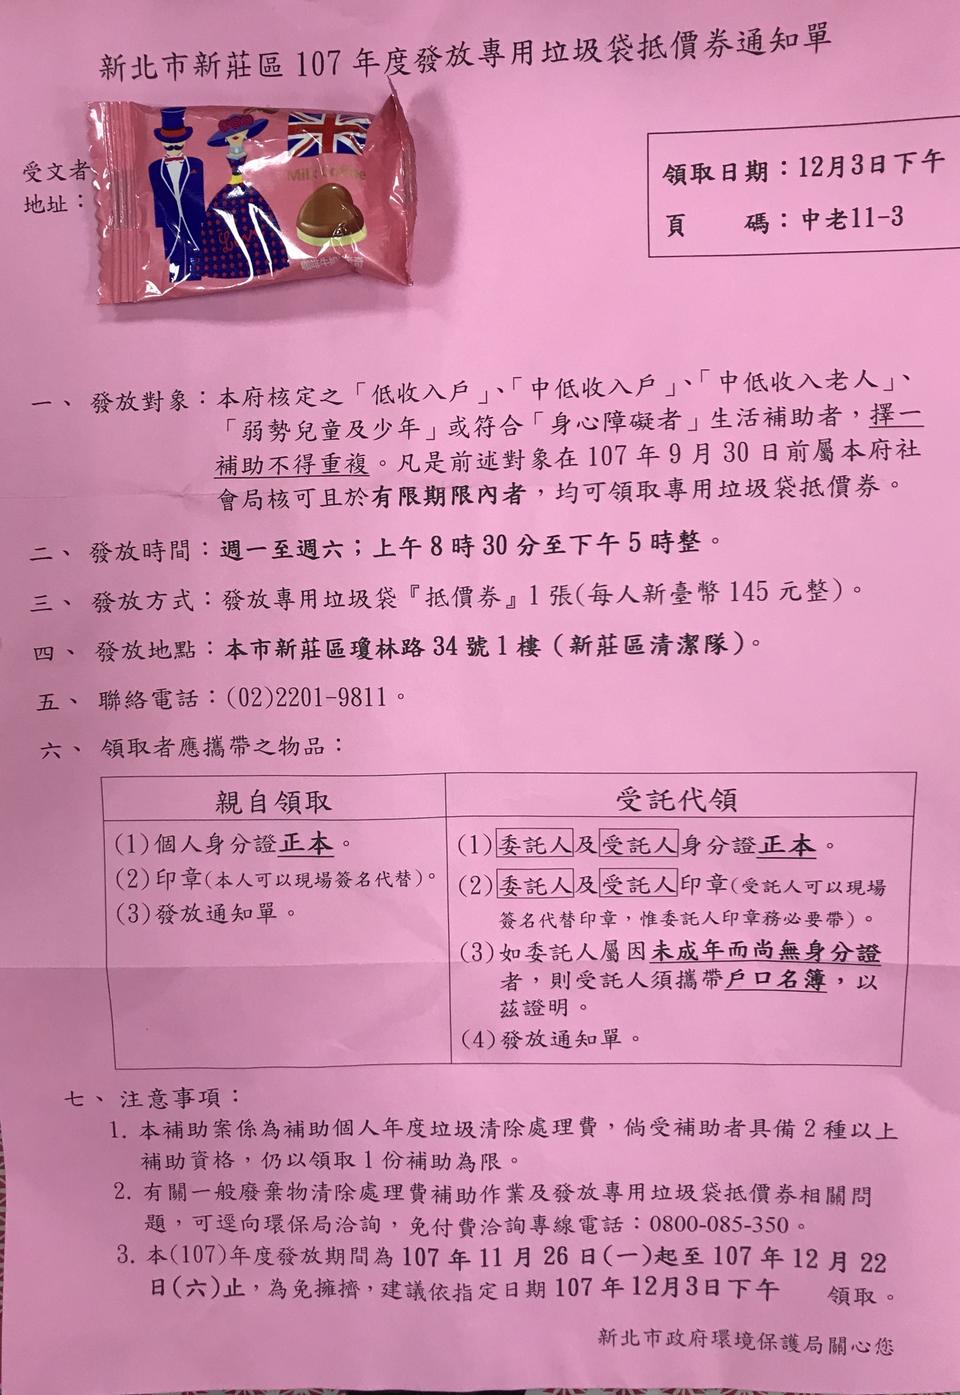 新北市新莊區 107 年度發放專用垃圾袋抵價券通知單
受文者
地址：
領取日期：12月3日下午
頁　　碼：中老11-3
一、 發放對象：本府核定之「低收入戶」、「中低收入戶」、「中低收入老人」、
「弱勢兒童及少年」或符合「身心障礙者」生活補助者，擇一
補助不得重複。凡是前述對象在 107 年 9 月 30 日前屬本府社
會局核可且於有限期限內者，均可領取專用垃圾袋抵價券。
二、 發放時間：週一至週六；上午 8 時 30 分至下午 5 時整。
三、 發放方式：發放專用垃圾袋『抵價券』1 張(每人新臺幣 145 元整)。
四、 發放地點：本市新莊區瓊林路 34 號 1 樓（新莊區清潔隊）。
五、 聯絡電話：(02)2201-9811。
六、 領取者應攜帶之物品：
親自領取
(1)個人身分證正本。
(2)印章(本人可以現場簽名代替)。
(3)發放通知單。
受託代領
(1)委託人及受託人身分證正本。
(2)委託人及受託人印章(受託人可以現場
簽名代替印章，惟委託人印章務必要帶)。
(3)如委託人屬因未成年而尚無身分證
者，則受託人須攜帶戶口名簿，以
茲證明。
(4)發放通知單。
七、 注意事項：
1. 本補助案係為補助個人年度垃圾清除處理費，倘受補助者具備 2 種以上
補助資格，仍以領取 1 份補助為限。
2. 有關一般廢棄物清除處理費補助作業及發放專用垃圾袋抵價券相關問
題，可逕向環保局洽詢，免付費洽詢專線電話：0800-085-350。
3. 本(107)年度發放期間為 107 年 11 月 26 日(一)起至 107 年 12 月 22
日(六)止，為免擁擠，建議依指定日期 107 年 12月3日下午　　領取。
新北市政府環境保護局關心您